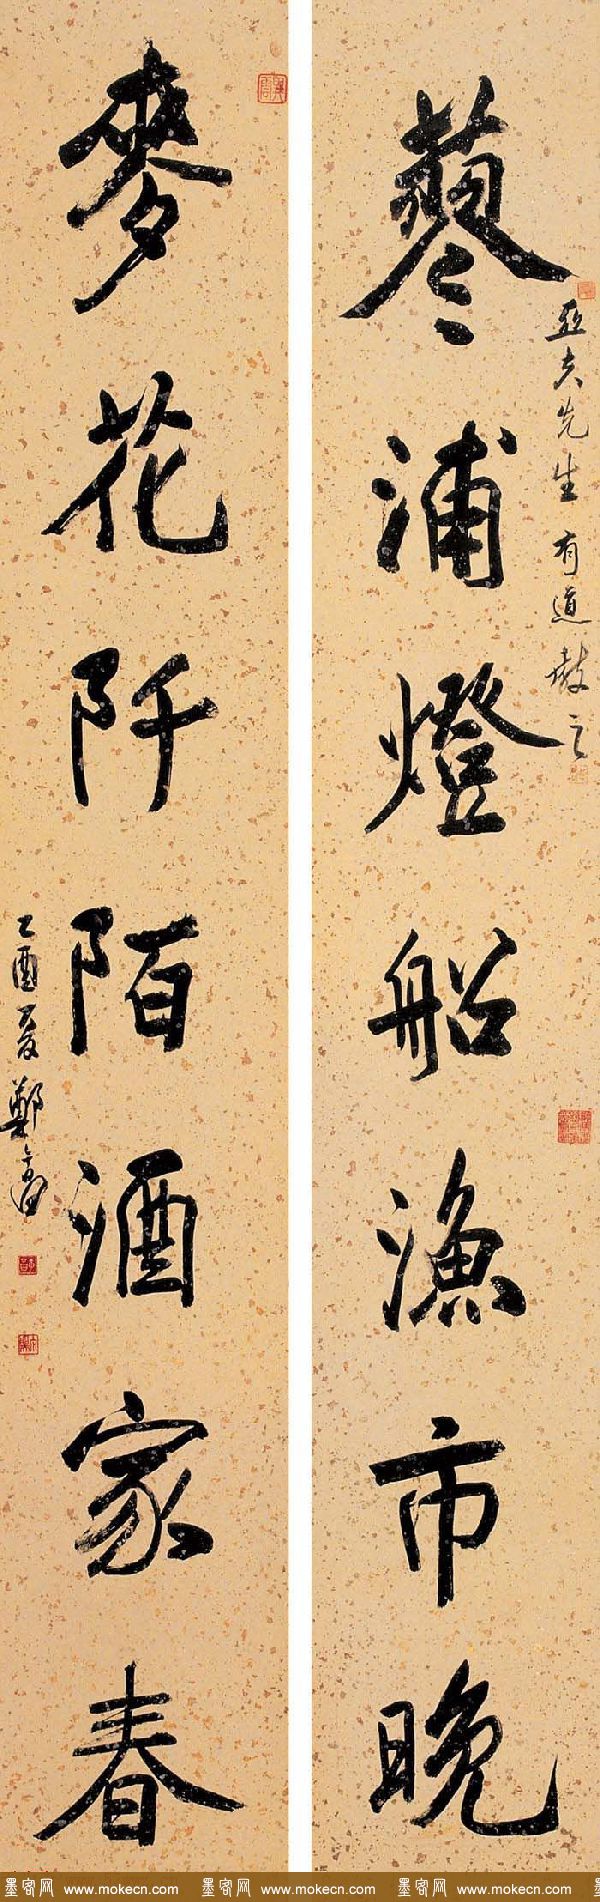 蓼浦燈船漁市晚
亞夫先生有道教之
麥花阡陌酒家春
乙酉夏鄭
墨客网 www.mokecn.com 墨客网 www.mokecn.com 墨客网 www.mokecn.com 墨客网 www.mokecn.com